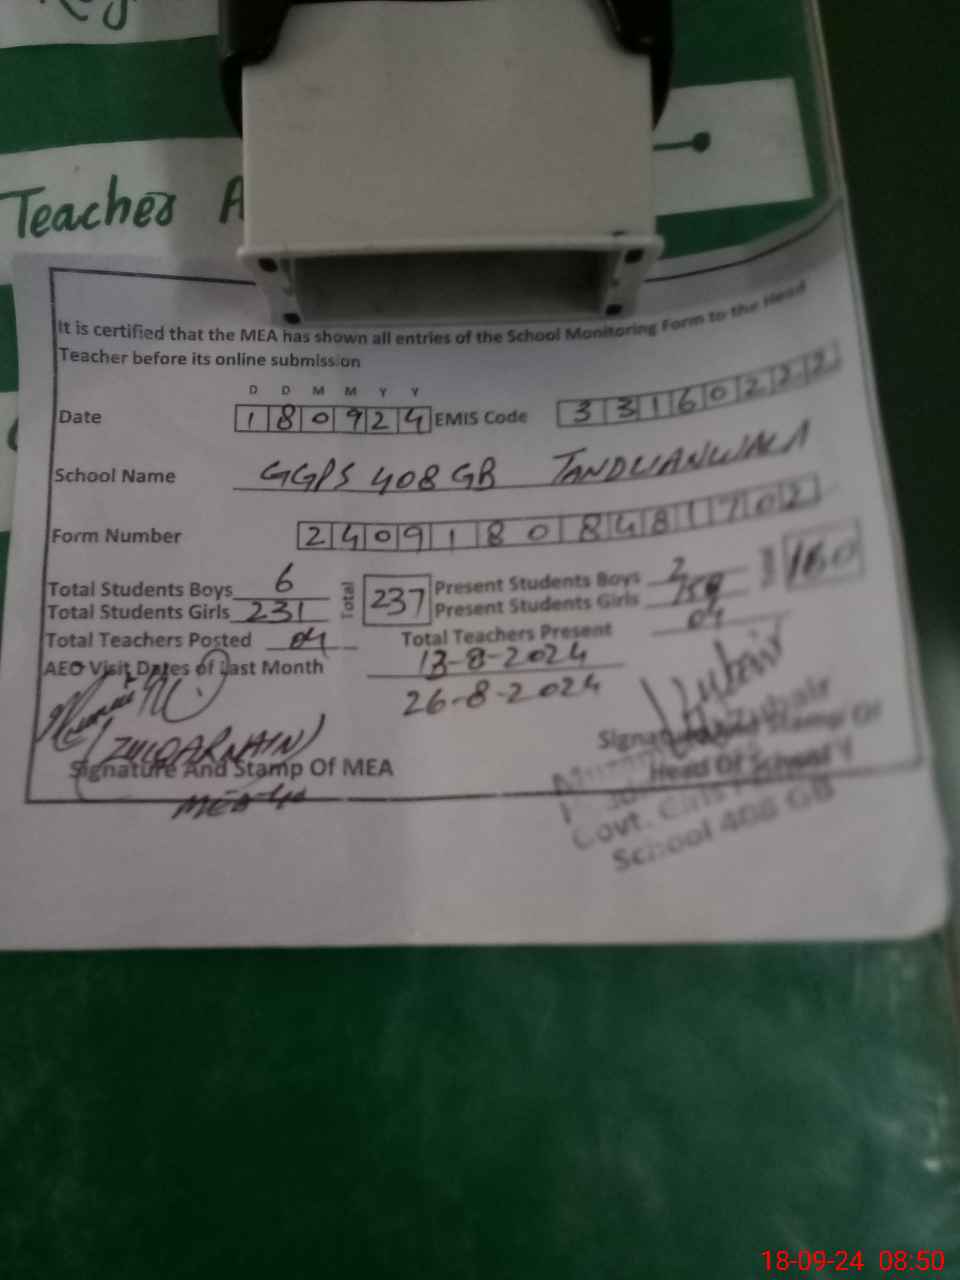 Teacher A
It is certified that the MEA has shown all entries of the School Monitoring Form to the Head
Teacher before its online submission
D D M M Y Y
Date 180924 EMIS Code 33160222
School Name GGPS 408 GB TANDLIANWALA
Form Number 24091808481702
Total Students Boys 6 Total 237 Present Students Boys 2 160
Total Students Girls 231 Present Students Girls 158
Total Teachers Posted 04 Total Teachers Present 04
AEO Visit Dates of Last Month 13-8-2024
26-8-2024
(ZULQARNAIN)
Signature And Stamp Of MEA
Signature And Stamp Of
Head Of School
MEA-40
Govt. Girls
School 408 GB
18-09-24 08:50